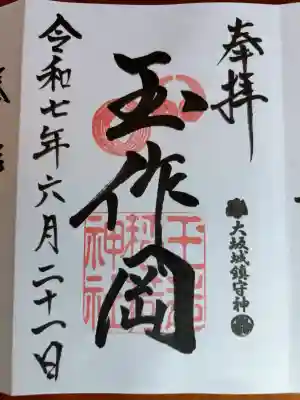 奉拝
大坂城鎮守神
玉作岡
玉造稲荷神社
令和七年六月二十一日